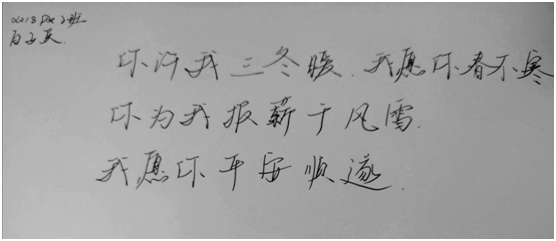 2018级2班
你许我三冬暖.我愿你春不寒
你为我报薪于风雪.
我愿你平安顺遂.